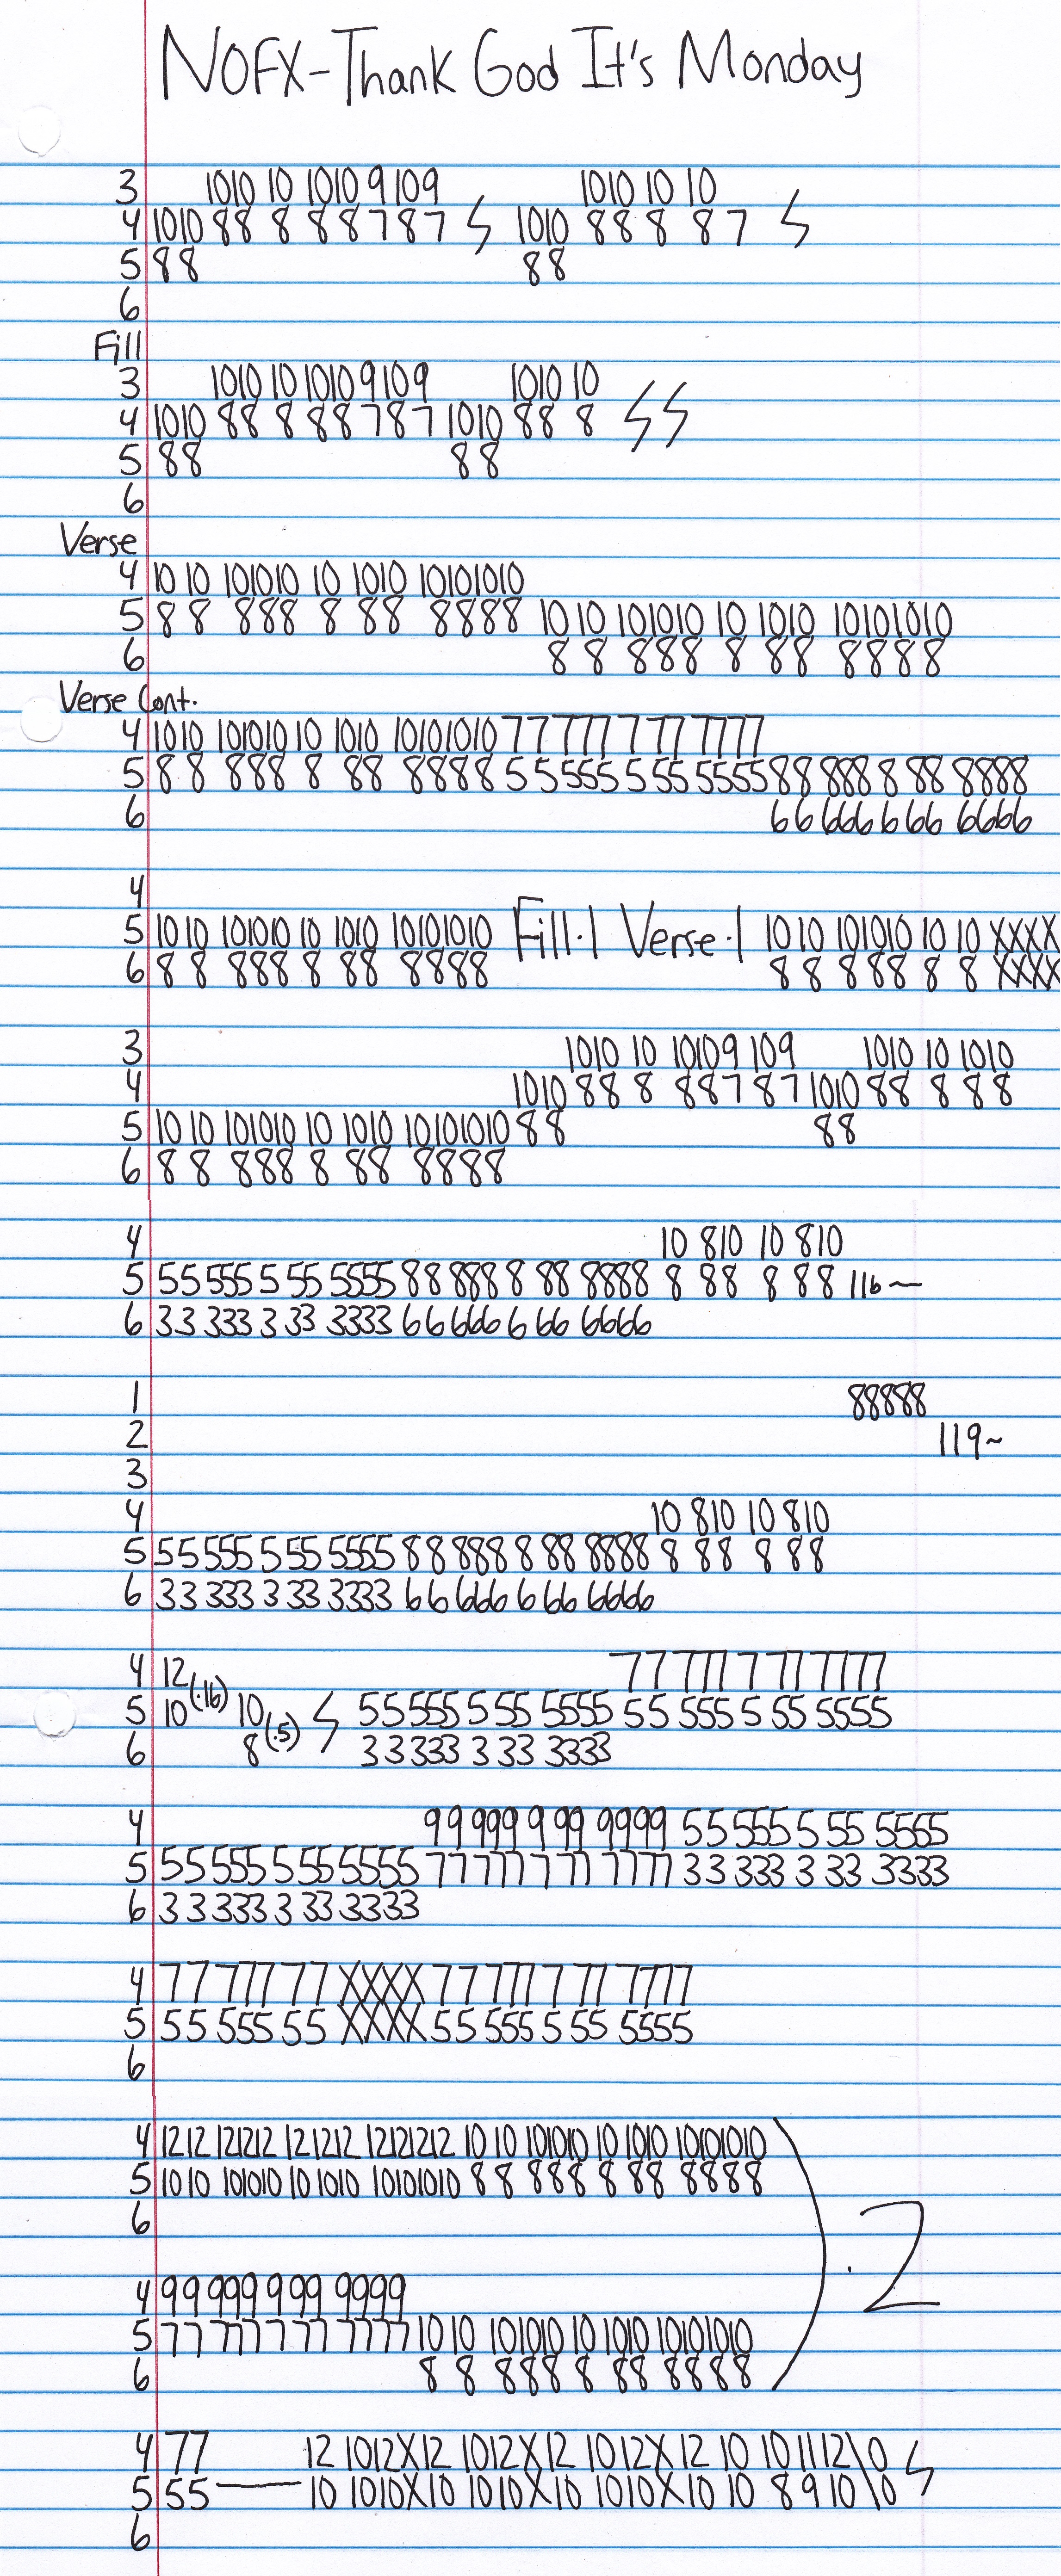 NOFX-Thank God It's Monday
3 1010 10 1010 9 109 1010 10 10
4 1010 88 8 8 8 7 87 1010 88 8 8 7
5 88 88
6
Fill
3 1010 10 1010 9 109 1010 10
4 1010 88 8 88 7 87 1010 88 8
5 88 88
6
Verse
4 10 10 101010 10 1010 10101010
5 8 8 888 8 88 8888 10 10 101010 10 1010 10101010
6 8 8 888 8 88 8888
Verse Cont.
4 1010 101010 10 1010 10101010 77 777 7 77 7777
5 8 8 888 8 88 8888 55 555 5 55 5555 88 888 8 88 8888
6 66 666 6 66 6666
4
5 10 10 101010 10 1010 10101010 Fill·1 Verse·1 10 10 101010 10 10 XXXX
6 8 8 888 8 88 8888 8 8 8 88 8 8 XXXX
3 1010 10 1010 9 109 1010 10 1010
4 1010 88 8 88 7 87 1010 88 8 88
5 10 10 101010 10 1010 10101010 88 88
6 8 8 888 8 88 8888
4 10 810 10 810
5 55 555 5 55 5555 88 888 8 88 8888 8 88 8 88 116~
6 33 333 3 33 3333 66 666 6 66 6666
1 88888
2 119~
3
4 10 810 10 810
5 55 555 5 55 5555 88 888 8 88 8888 8 88 8 88
6 33 333 3 33 3333 66 666 6 66 6666
4 12 77 777 7 77 7777
5 10 (·16) 10 55 555 5 55 5555 55 555 5 55 5555
6 8 (·5) 33 333 3 33 3333
4 99 999 9 99 9999 55 555 5 55 5555
5 55 555 5 55 5555 77 777 7 77 7777 33 333 3 33 3333
6 33 333 3 33 3333
4 77 777 77 XXXX 77 777 7 77 7777
5 55 555 55 XXXX 55 555 5 55 5555
6
4 1212 121212 12 1212 12121212 10 10 101010 10 1010 10101010
5 1010 101010 10 1010 10101010 8 8 888 8 88 8888
6
·2
4 99 999 9 99 9999
5 77 777 7 77 7777 10 10 101010 10 1010 10101010
6 8 8 888 8 88 8888
4 77 12 1012X12 1012X12 1012X12 10 10 11 12\0
5 55 — 10 1010X10 1010X10 1010X10 10 8 9 10\0
6